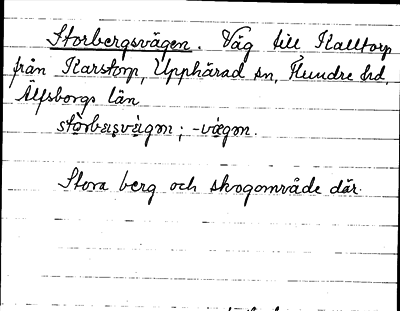 Storbergsvägen. Väg till Kalltorp
från Karstorp, Upphärad sn, Flundre hd,
Älfsborgs län
-vägen.
Stora berg och skogområde där.